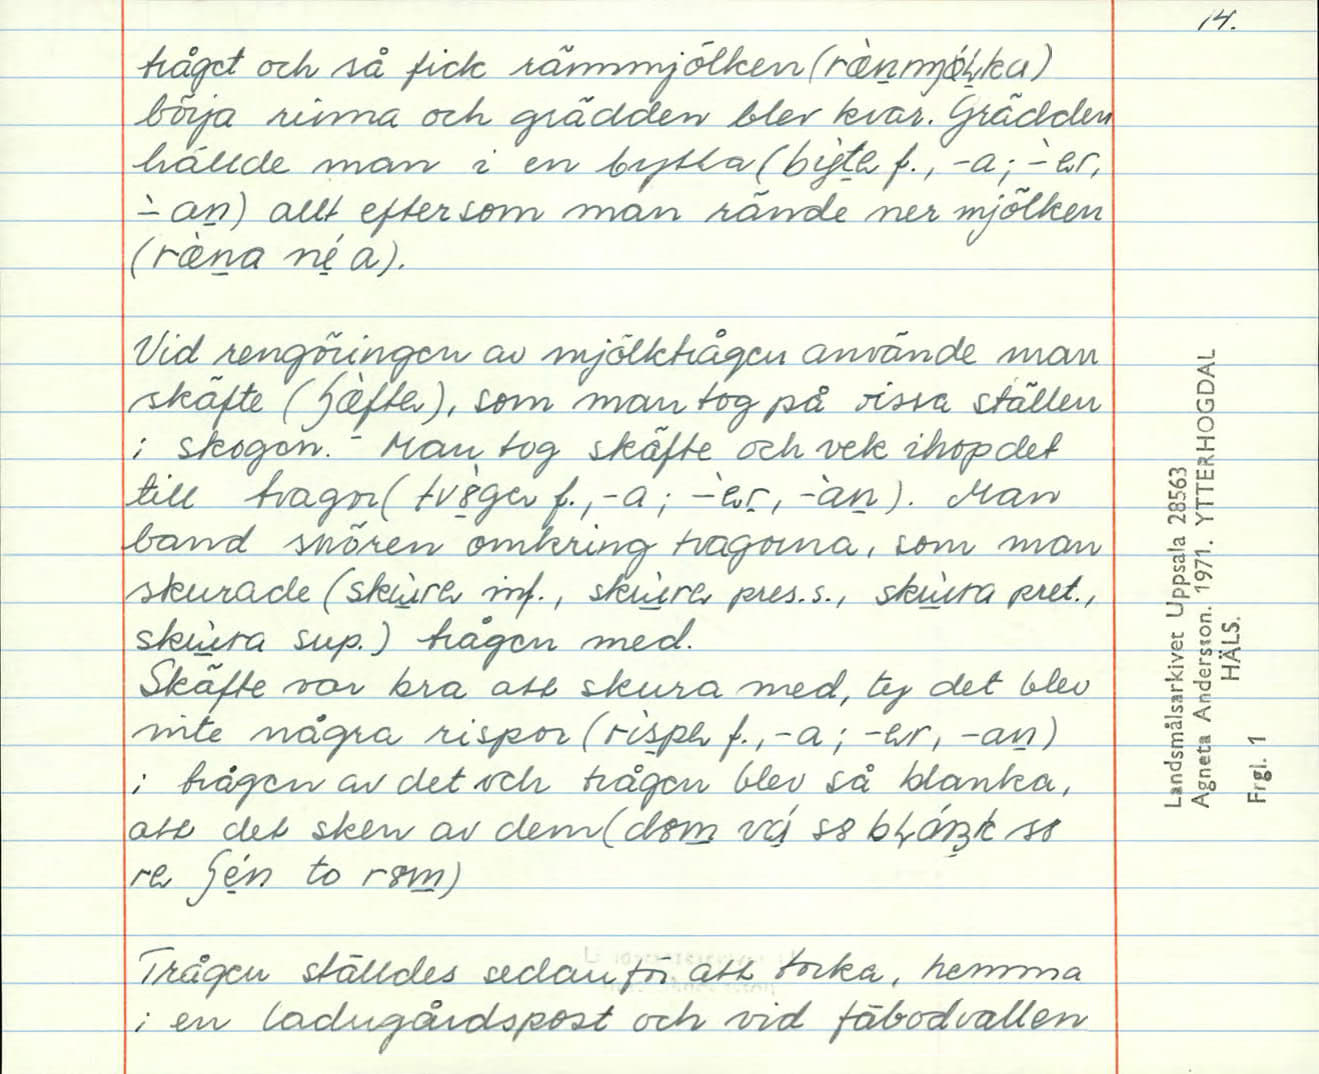 14.
tråget och så fick rämnmjölken (ræ̀nmjǿɫka)
börja rinna och grädden blev kvar. Grädden
hällde man i en bytta (bỳta f., -a; -̀er,
-̀an) allt eftersom man rände ner mjölken
(ræ̀na né a).
Vid rengöringen av mjölktrågen använde man
skäfte (ʃæ̀fte), som man tog på vissa ställen
i skogen. - Man tog skäfte och vek ihop det
till tvagor (tvògɐ f., -a; -̀er, -̀an). Man
band snören omkring tvagorna, som man
skurade (skùra inf., skùra pres.s., skùra pret.,
skùra sup.) trågen med.
Skäfte var bra att skura med, ty det blev
inte några rispor (rìspa f., -a; -er, -an)
i trågen av det och trågen blev så blanka,
att det sken av dem (dɵm vá sɵ bɫáŋk sɵ
re ʃén to rɵm)
Trågen ställdes sedan för att torka, hemma
i en ladugårdspost och vid fäbodvallen
Landsmålsarkivet Uppsala 28563
Agneta Andersson. 1971. YTTERHOGDAL
HÄLS.
Frgl. 1